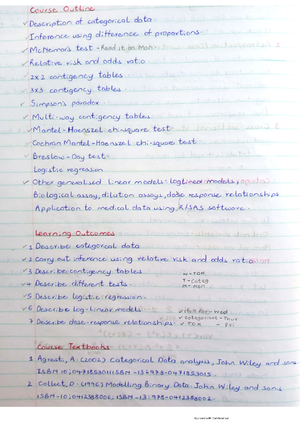 Course Outline
Description of categorical data
Inference using difference of proportions
McNemar's test - Read it on Mon
Relative risk and odds ratio
2x2 contigency tables
rxs contigency tables
Simpson's paradox
Multi-way contigency tables
Mantel-Haenszel chi-square test
Cochran Mantel-Haenszel chi-square test
Breslow-Day test
Logistic regression
Other generalised linear models: loglinear models,
Biological assay, dilution assays, dose response relationships
Application to medical data using R/SAS software
Learning Outcomes
1 Describe categorical data
2 Carry out inference using relative risk and odds ratio
3 Describe contigency tables
4 Describe different tests
5 Describe logistic regression
6 Describe log-linear models
7 Describe dose-response relationships
W - TOM
T - Categ
TOM - Fri
Course Textbooks
1 Agresti, A. (2002) Categorical Data analysis, John Wiley and sons
2 Collet, D. (1996) Modelling Binary Data. John Wiley and sons